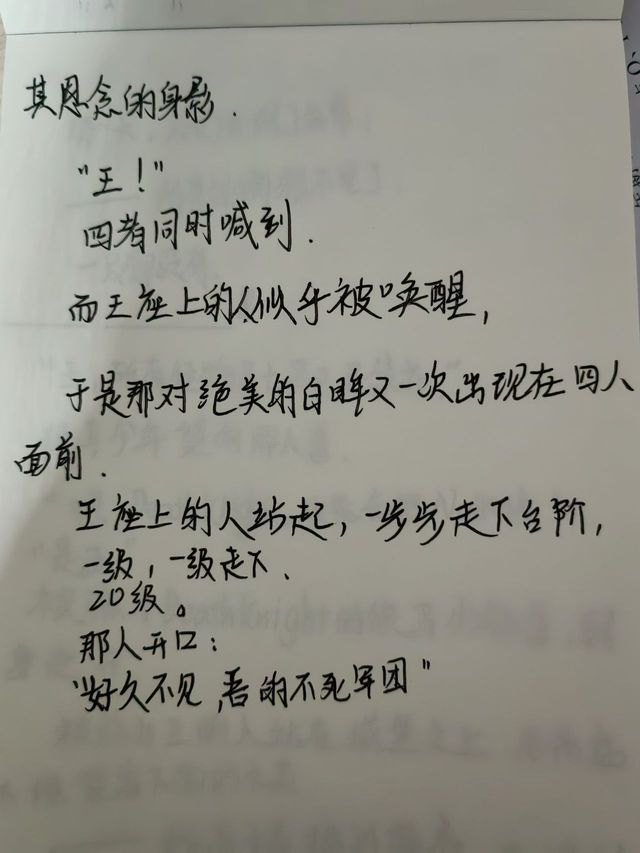 其思念的身影.
"王！"
四者同时喊到.
而王座上的人似乎被唤醒,
于是那对绝美的白眸又一次出现在四人
面前.
王座上的人站起,一步步走下台阶,
一级,一级走下.
20级。
那人开口：
"好久不见,吾的不死军团"